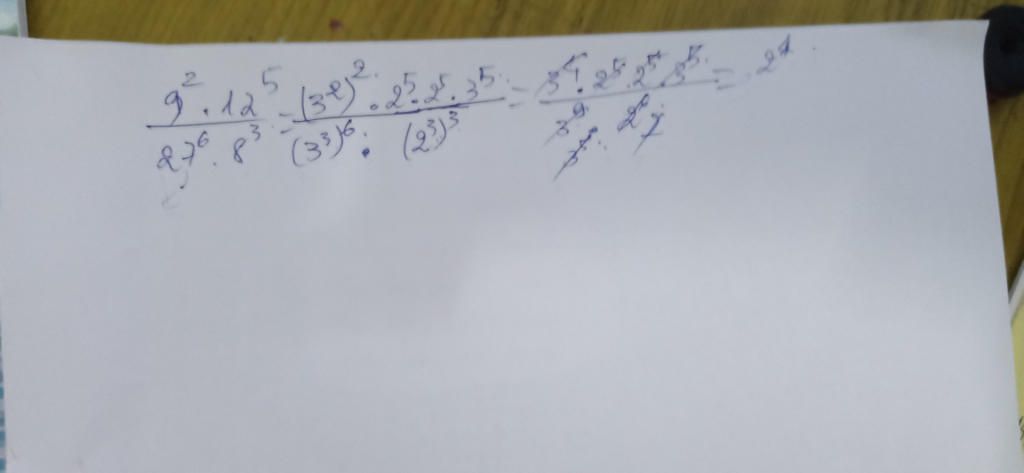 9² · 12⁵ / 27⁶ · 8³ = (3²)² · 2⁵ · 2⁵ · 3⁵ / (3³)⁶ · (2³)³ = 3⁴ · 2⁵ · 2⁵ · 3⁵ / 3⁹ · 2 = 2